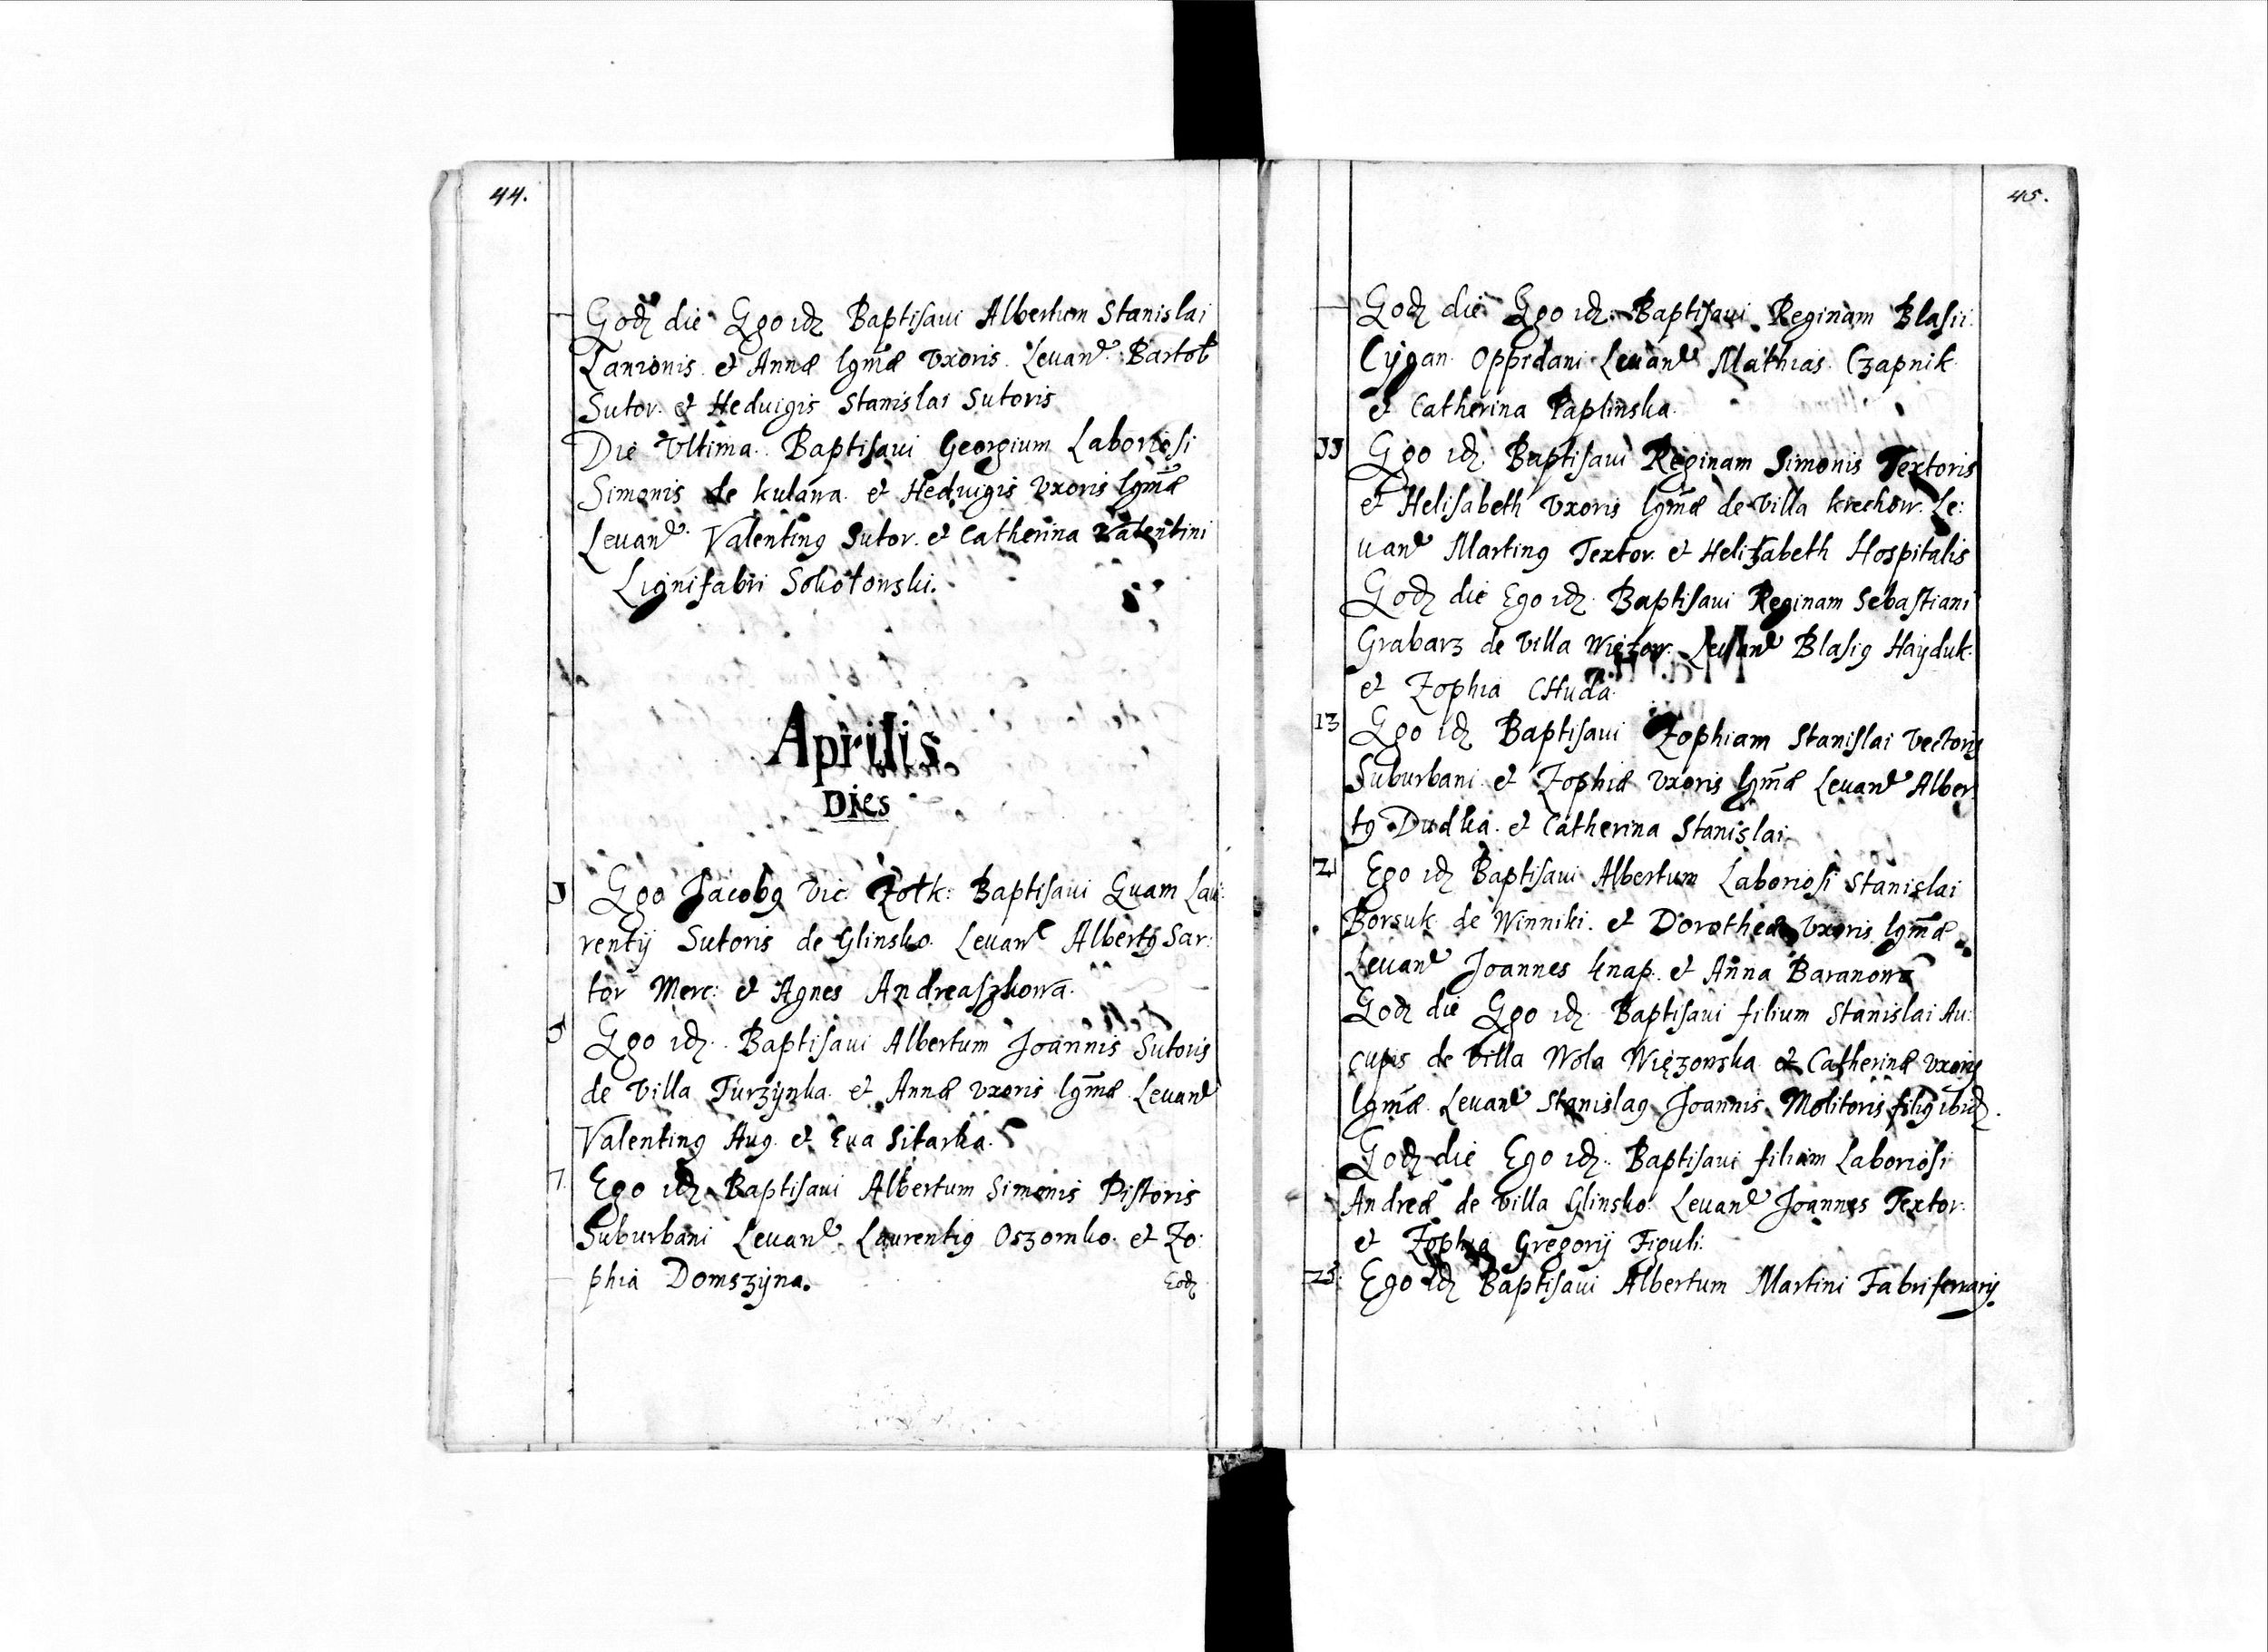 44.
Eodẽ die Ego idẽ Baptisavi Albertum Stanislai
Lanionis. et Annæ lgm̃æ Vxoris. Levanẽ: Bartoł
Sutor. et Heduigis Stanislai Sutoris
Die Vltima. Baptisavi Georgium Laboriosi
Simonis de kulawa. et Heduigis Vxoris lgm̃æ
Levanẽ. Valentinꝰ Sutor. et Catherina Valentini
Lignifabri Sokołowski.
Aprilis.
Dies
1 Ego Jacobꝰ Vic: Zołk: Baptisavi Euam Lau:
rentij Sutoris de Glinsko. Levanẽ Albertꝰ Sar:
tor Merc: et Agnes Andreaszkowa.
5 Ego idẽ. Baptisavi Albertum Joannis Sutoris
de Villa Turzynka. et Annæ vxoris lgm̃æ. Levanẽ
Valentinꝰ Aug. et Eua Sitarka.
7. Ego idẽ Baptisavi Albertum Simonis Pistoris
Suburbani Levanẽ. Laurentiꝰ Oszomko. et Zo:
phia Domszyna.
Eodẽ
45.
Eodẽ die Ego idẽ. Baptisavi Reginam Blasii.
Cygan. Oppidani Levanẽ Mathias. Czapnik.
et Catherina Paplinska.
11 Ego idẽ. Baptisavi Reginam Simonis Textoris
et Helisabeth Vxoris lgm̃æ de Villa krechow. Le:
uanẽ Martinꝰ Textor. et Helizabeth Hospitalis
Eodẽ die Ego idẽ. Baptisavi Reginam Sebastiani
Grabarz de Villa Więzow. Levanẽ Blasiꝰ Hayduk.
et Zophia CHuda.
13 Ego idẽ Baptisavi Zophiam Stanislai Vectoris
Suburbani. et Zophiæ Vxoris lgm̃æ Levanẽ Alber
tꝰ Dudka. et Catherina Stanislai.
21 Ego idẽ Baptisavi Albertum Laboriosi Stanislai
Borsuk. de Winniki. et Dorotheæ Vxoris lgm̃æ
Levanẽ Joannes knap. et Anna Baranowa
Eodẽ die Ego idẽ. Baptisavi filium Stanislai Au:
cupis de Villa Wola Więzowska et Catherinæ vxoris
lgm̃æ. Levanẽ Stanislaꝰ Joannis Molitoris filiꝰ ibidẽ.
Eodẽ die Ego idẽ. Baptisavi filium Laboriosi
Andreæ de Villa Glinsko. Levanẽ Joannes Textor.
et Zophia Gregorij Figuli.
25. Ego idẽ Baptisavi Albertum Martini Fabriferrarij